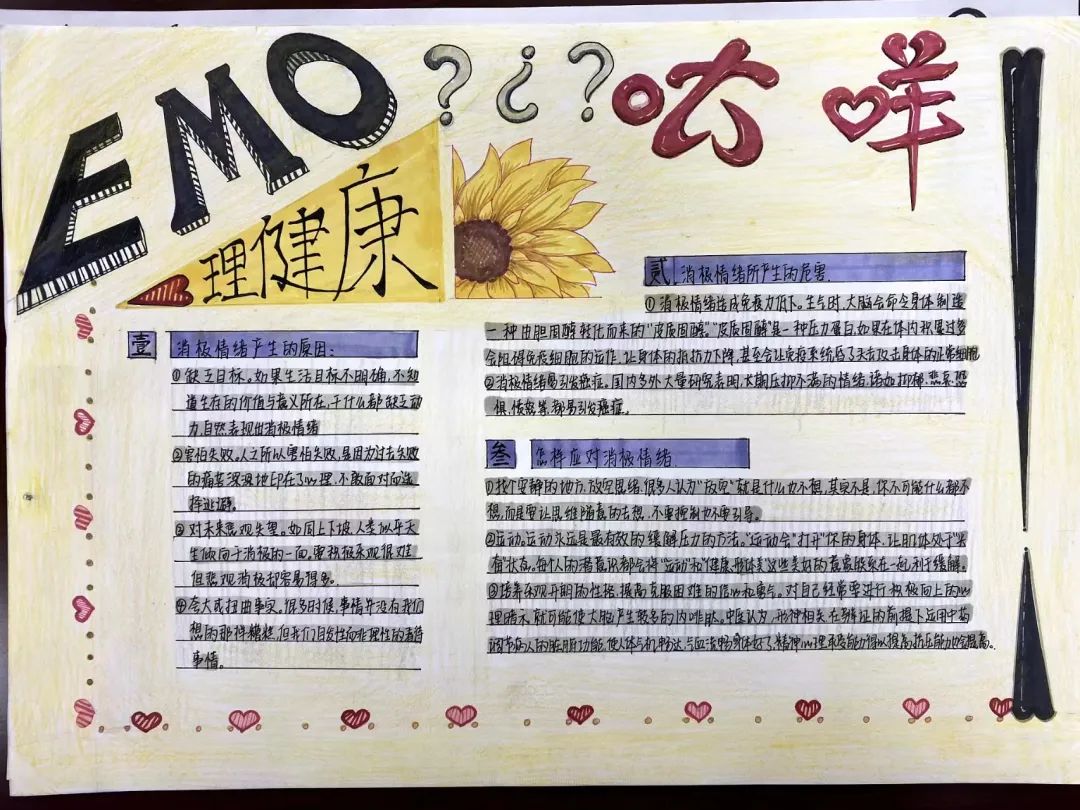 EMO？¿？咘咩
理健康
壹 消极情绪产生的原因：
①缺乏目标。如果生活目标不明确，不知
道生存的价值与意义所在，干什么都缺乏动
力，自然表现出消极情绪
②害怕失败。人之所以害怕失败，是因为过去失败
的痛苦深深地印在了心里，不敢面对而选
择逃避。
③对未来悲观失望。如同上下坡，人类似乎天
生倾向于消极的一面。要积极乐观很难
但悲观消极却容易得多。
④夸大或扭曲事实。很多时候，事情并没有我们
想的那样糟糕，但我们自发性而非理性的看待
事情。
贰 消极情绪所产生的危害
①消极情绪造成免疫力低下。生气时，大脑会命令身体制造
一种由胆固醇转化而来的"皮质固醇"。"皮质固醇"是一种压力蛋白，如果在体内积累过多
会阻碍免疫细胞的运作，让身体的抵抗力下降，甚至会让免疫系统后了夫去攻击身体的正常细胞
②消极情绪易引发癌症。国内多外大量研究表明，长期压抑不满的情绪，诸如抑郁、悲哀、恐
惧、愤怒等，都易引发癌症。
叁 怎样应对消极情绪
①找个安静的地方，放空思绪。很多人认为"放空"就是什么也不想，其实不是，你不可能什么都不
想，而是要让思维随意的去想，不要抑制也不要引导。
②运动。运动永远是最有效的缓解压力的方法。"运动会"打开"你的身体，让肌体处于
有状态。每个人的潜意识都会将"运动"和"健康、形体美"这些美好的意象联系在一起，利于缓解。
③培养乐观开朗的性格，提高克服困难的信心和勇气。对自己经常要进行积极向上的心
理暗示，就可能使大脑产生较多的内啡肽。中医认为，形神相关，在辨证的前提下运用中药
调节病人的脏腑功能，使人体气机畅达，气血流畅，身体好了，精神心理承受能力得以提高，抗压能力也会提高。